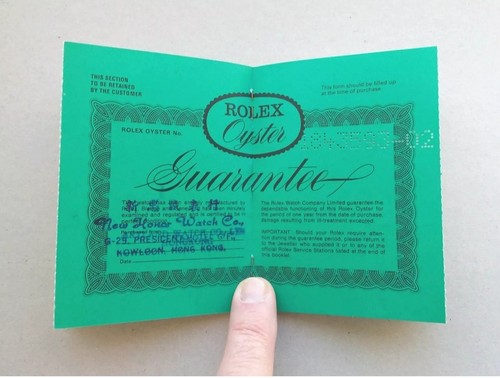 THIS SECTION
TO BE RETAINED
BY THE CUSTOMER
This form should be filled up
at the time of purchase
ROLEX
Oyster
ROLEX OYSTER No.
Guarantee
examined and registered and is certified to be in
New Honor Watch Co.
G-29, PRESIDENT
KOWLOON, HONG KONG.
Date
The Rolex Watch Company Limited guarantees the
dependable functioning of this Rolex Oyster for
the period of one year from the date of purchase,
damage resulting from ill-treatment excepted.
IMPORTANT: Should your Rolex require atten-
tion during the guarantee period, please return it
to the Jeweller who supplied it or to any of the
official Rolex Service Stations listed at the end of
this booklet.